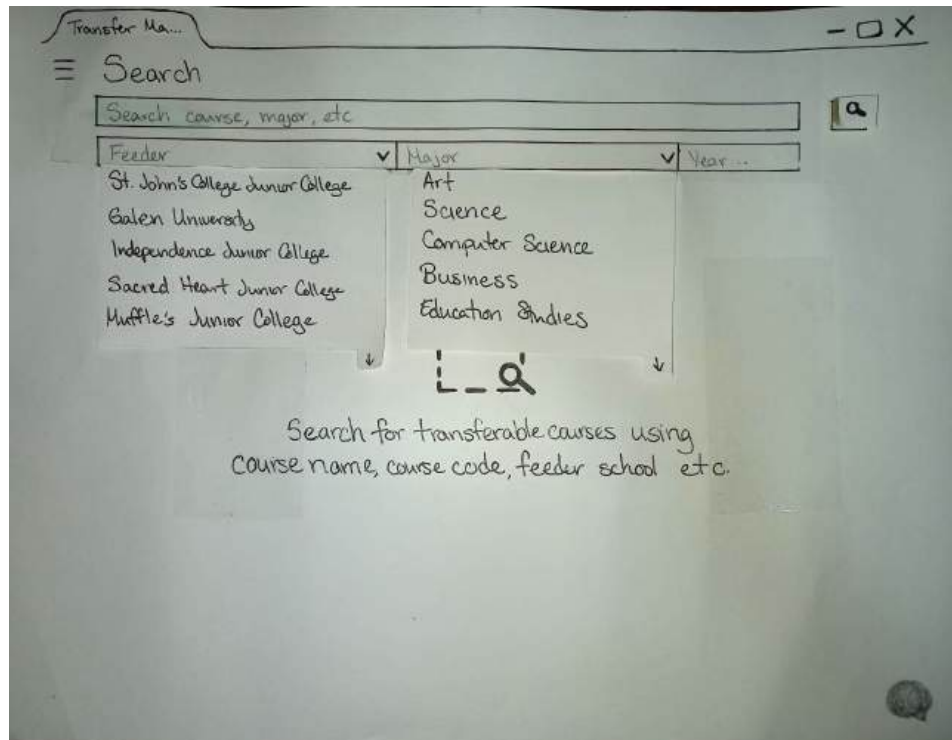 Transfer Ma...
Search
Search course, major, etc
Feeder Major Year...
St. John's College Junior College
Galen University
Independence Junior College
Sacred Heart Junior College
Muffle's Junior College
Art
Science
Computer Science
Business
Education Studies
Search for transferable courses using
course name, course code, feeder school etc.